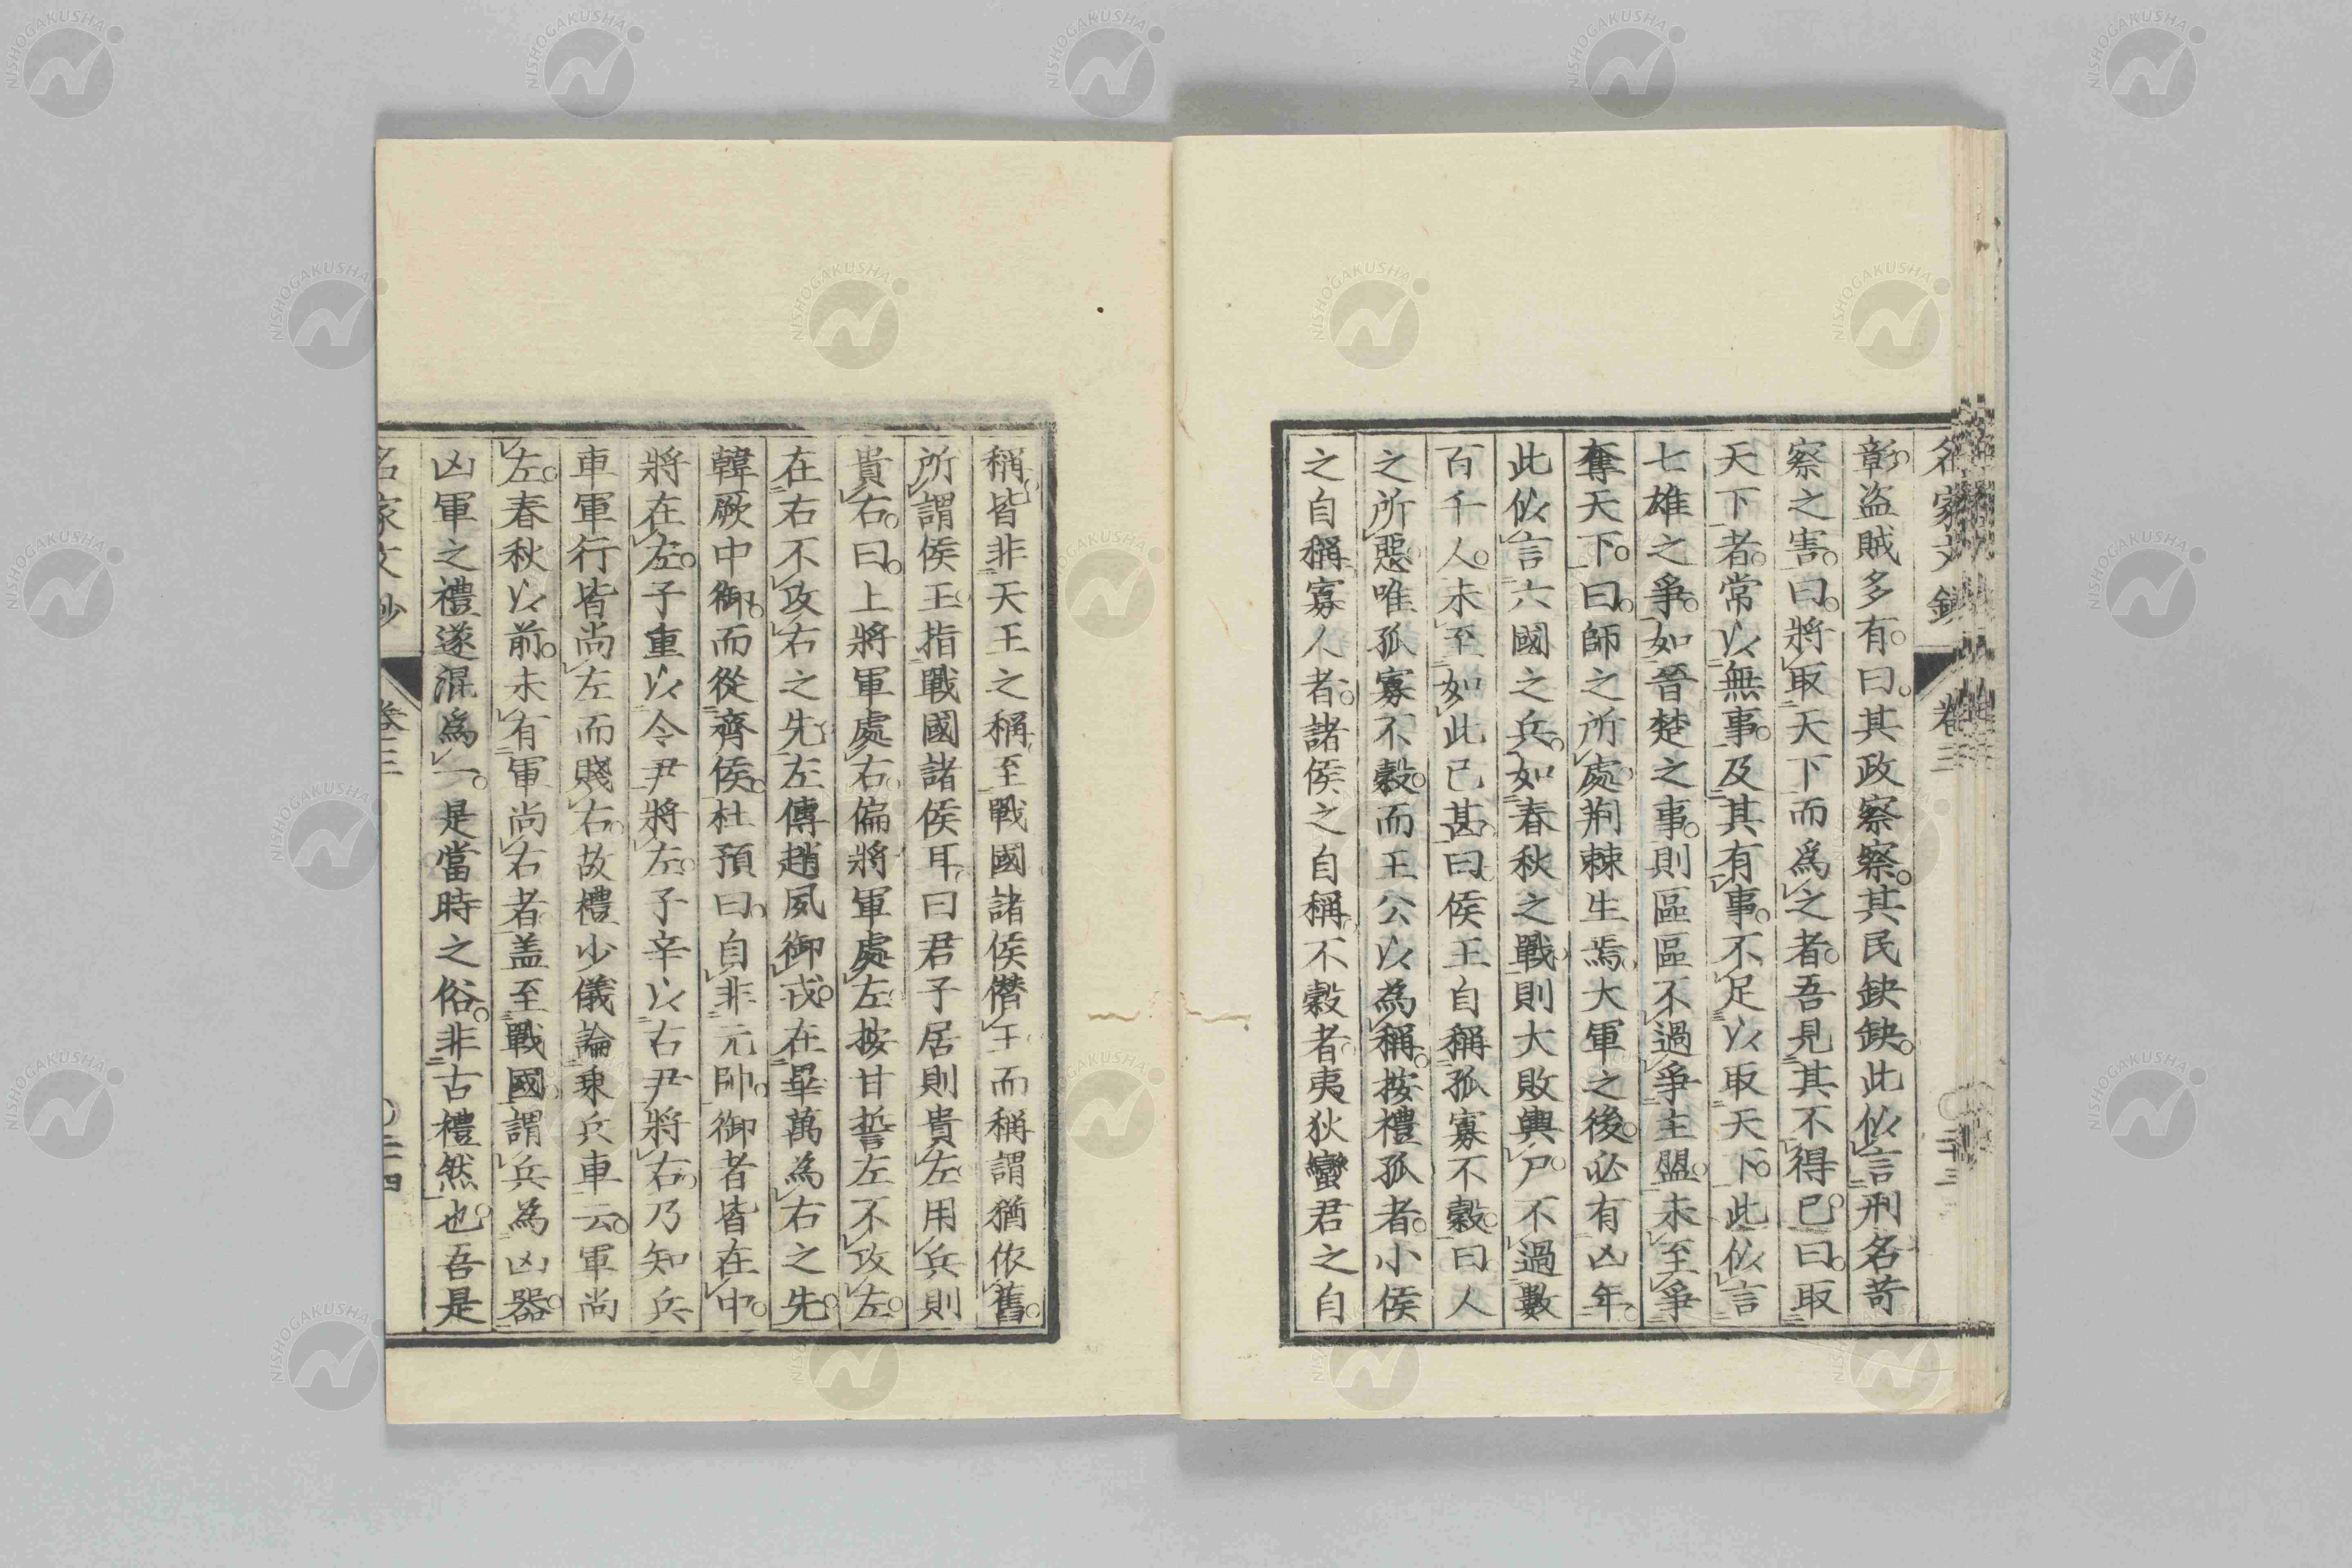 名家文鈔 卷三 二十三
彰盗賊多有曰其政察察其民缺缺此似言刑名苛
察之害曰將取天下而爲之者吾見其不得已曰取
天下者常以無事及其有事不足以取天下此似言
七雄之爭如晉楚之事則區區不過爭主盟未至爭
奪天下曰師之所處荆棘生焉大軍之後必有凶年
此似言六國之兵如春秋之戰則大敗輿尸不過數
百千人未至如此已甚曰侯王自稱孤寡不穀曰人
之所惡唯孤寡不穀而王公以為稱按禮孤者小侯
之自稱寡人者諸侯之自稱不穀者夷狄蠻君之自
稱皆非天王之稱至戰國諸侯僭王而稱謂猶依舊
所謂侯王指戰國諸侯耳曰君子居則貴左用兵則
貴右曰上將軍處右偏將軍處左按甘誓左不攻左
在右不攻右之先左傳趙夙御戎在畢萬為右之先
韓厥中御而從齊侯杜預曰自非元帥御者皆在中
將在左子重以令尹將左子辛以右尹將右乃知兵
車軍行皆尚左而賤右故禮少儀論乗兵車云軍尚
左春秋以前未有軍尚右者盖至戰國謂兵為凶器
凶軍之禮遂混爲一是當時之俗非古禮然也吾是
名家文鈔 卷三 二十四
NISHOGAKUSHA